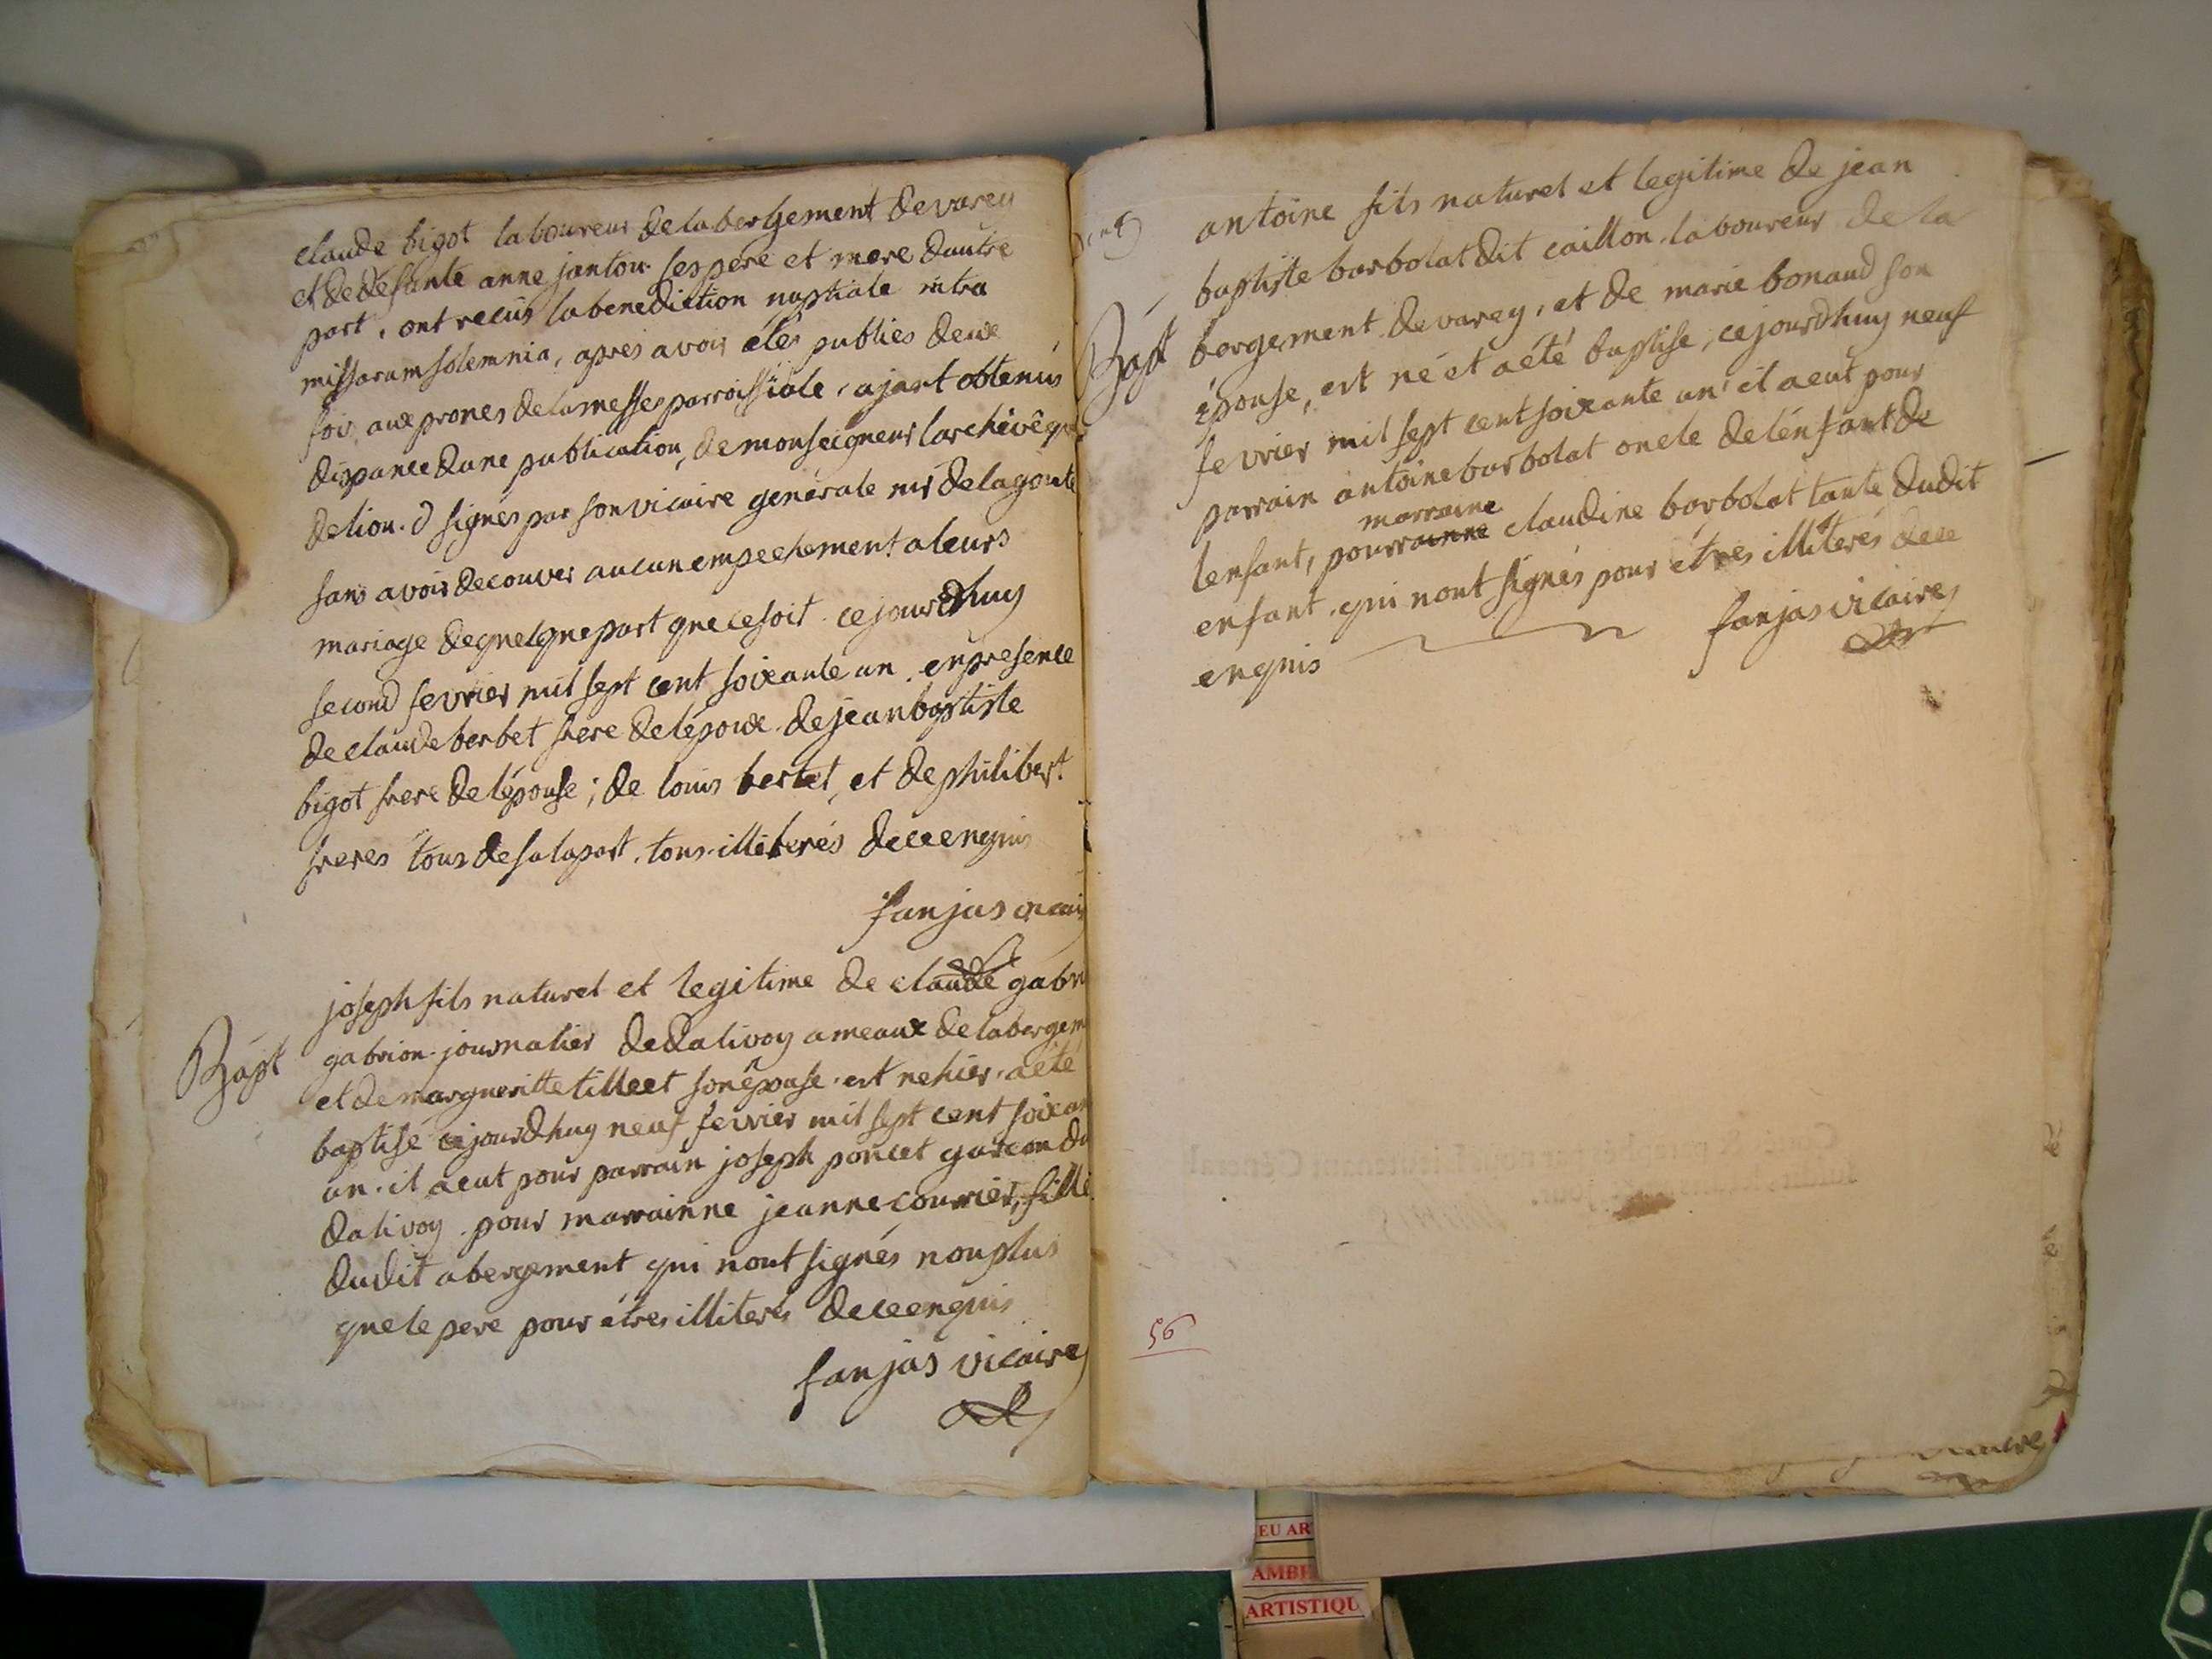 claude bigot laboureur delabergement devarey
et de defunte anne jantou ses pere et mere dautre
part, ont recus labenediction nuptiale intra
missarum solemnia, apres avoir étés publies deux
fois aux prones delamesse parroissiale, ajant obtenus
dispance dune publication, de monseigneur larchevêque
delion. signés par son vicaire generale mr delagoute
sans avoir decouver aucun empechement aleurs
mariage dequelque part que ce soit. cejourdhuy
second fevrier mil sept cent soixante un. enpresence
de claude berbet frere delépoux. dejeanbaptiste
bigot frere delépouse; de louis bertet, et de philibert
freres tous desalapart. tous illiterés dece enquis
fanjas vicair
joseph fils naturel et legitime de claude gabri
Bapt gabrion journalier dedalivoy ameaux delabergem
et de margueritte tilleet son épouse. est nehier. aété
baptisé cejourdhuy neuf fevrier mil sept cent soixan
un. il aeut pour parrain joseph poncet garcon du
dalivoy. pour marrainne jeanne courrier, fille
dudit abergement qui nont signés nonplus
quele pere pour étres illiterés dece enquis
fanjas vicaire
antoine fils naturel et legitime de jean
baptiste barbolat dit caillon. laboureur de la
Bapt bergement devarey, et de marie bonaud son
épouse, est né et aété baptise, cejourdhuy neuf
fevrier mil sept cent soixante un. il aeut pour
parrain antoine barbolat oncle delénfant de
marraine
lenfant, pourrainne claudine barbolat tante dudit
enfant. qui nont signés pour étres illiterés dece
enquis fanjas vicaire
56
EU AR
AMBE
ARTISTIQU